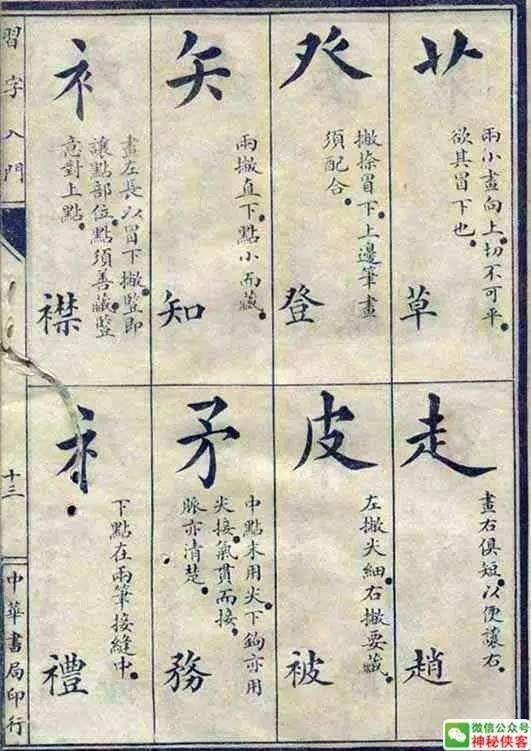 習字入門
十三
中華書局印行
艹
兩小畫向上切不可平
欲其冒下也
草
癶
撇捺冒下上邊筆畫
須配合
登
矢
兩撇直下點小而藏
知
衤
畫左長以冒下撇豎即
讓點部位點須善藏豎
意對上點
襟
走
畫右俱短以便讓右
趙
皮
左撇尖細右撇要藏
被
矛
中點末用尖下鉤亦用
尖接氣貫而接
脈亦清楚
務
礻
下點在兩筆接縫中
禮
微信公众号
神秘侠客